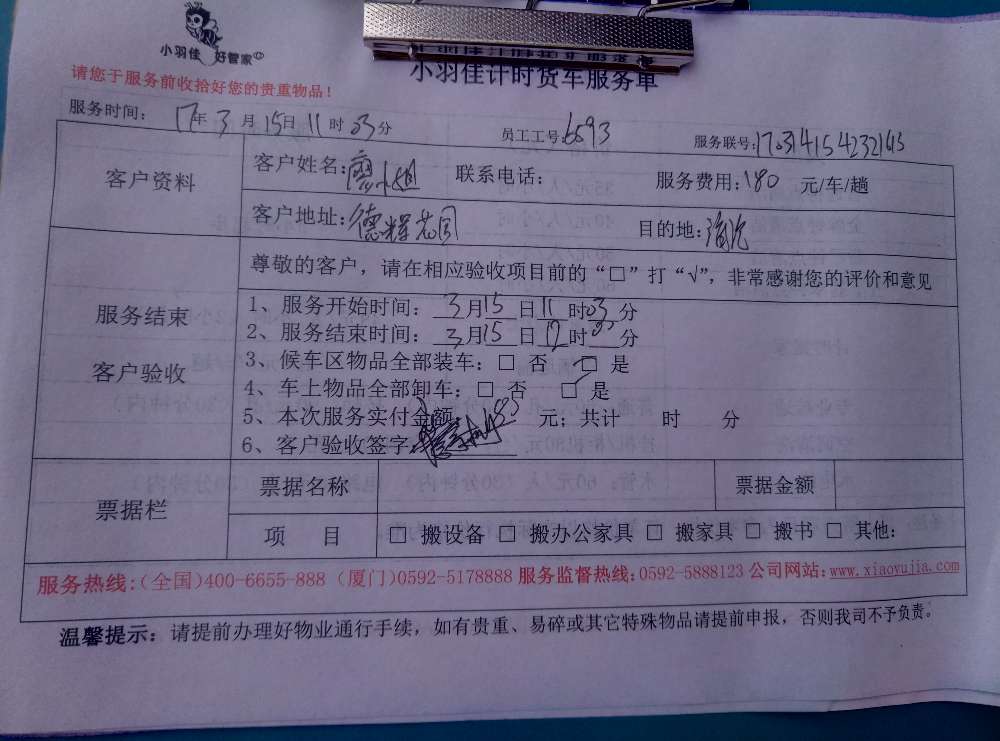 小羽佳 好管家
小羽佳计时货车服务单
请您于服务前收拾好您的贵重物品！
服务时间： 17年 3 月 15日 11 时 03分 员工工号：6593 服务联号：170314154232143
客户资料 客户姓名：廖小姐 联系电话： 服务费用：180 元/车/趟
客户地址：德辉花园 目的地：
尊敬的客户，请在相应验收项目前的“□”打“√”，非常感谢您的评价和意见
服务结束
客户验收
1、服务开始时间： 3 月 15 日 11 时 03 分
2、服务结束时间： 3 月 15 日 12 时 分
3、候车区物品全部装车：□ 否 □ 是
4、车上物品全部卸车：□ 否 □ 是
5、本次服务实付金额 元；共计 时 分
6、客户验收签字
票据栏 票据名称 票据金额
项 目 □ 搬设备 □ 搬办公家具 □ 搬家具 □ 搬书 □ 其他：
服务热线：（全国）400-6655-888（厦门）0592-5178888 服务监督热线：0592-5888123 公司网站：www.xiaoyujia.com
温馨提示：请提前办理好物业通行手续，如有贵重、易碎或其它特殊物品请提前申报，否则我司不予负责。